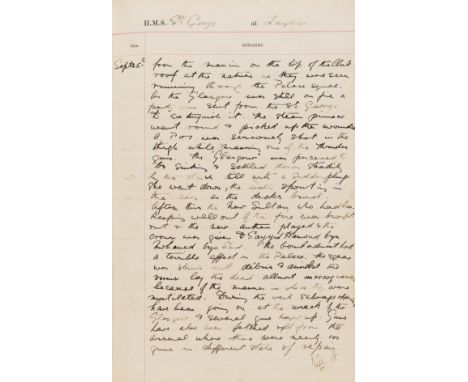 H.M.S. St. George at Zanzibar
DATE. REMARKS
Sept 5th from the maxim on the top of the Club
roof at the natives as they were seen
running through the Palace square.
As the Glasgow was still on fire a
party was sent from the St George
to extinguish it. The steam pinnace
went round & picked up the wounded
A P.O.1 was seriously shot in the
thigh while manning one of his thunder
guns. The 'Glasgow' was perceived to
be sinking & settled down steadily
by the till with a sudden plunge
She went down, the water spouting in
the air as the decks burst.
After this the new Sultan who had been
keeping well out of the fire was brought
out & the new anthem played & the
crown was given to Sayyid Hamoud bye
Mohamed bye Said. The bombardment had
a terrible effect on the Palace. The square
was strewn with débris & amidst the
ruins lay the dead almost unrecognisable
because of the manner in which they were
mutilated. During the week salvage
have been going on at the wreck of the
Glasgow & several guns Guns
have also been fetched off from the
arsenal where there were nearly 100
guns in different state of repair